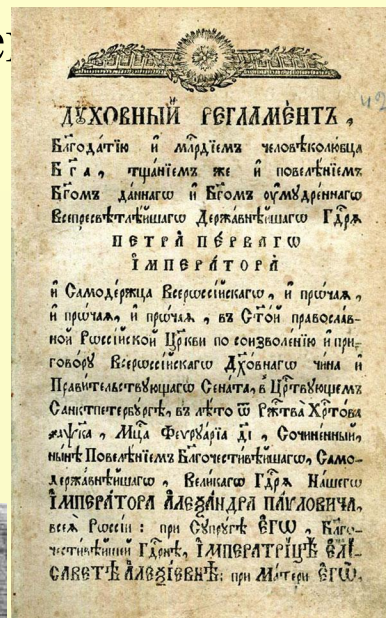 ДꙊХОВНЫЙ РЕГЛАМЕ́НТЪ,
Бл҃года́тїю и҆ млⷭ҇рдїемъ человѣколю́бца
Бг҃а, тща́нїемъ же и҆ повелѣ́нїемъ
Бг҃омъ да́ннагѡ и҆ Бг҃омъ ᲂумꙋдре́ннагѡ
Всепресвѣтлѣ́йшагѡ Держа́внѣйшагѡ Гдⷭ҇рѧ
ПЕТРА̀ ПЕ́РВАГѠ
І҆МПЕРА́ТОРА
и҆ Самоде́ржца Всерѡссі́йскагѡ, и҆ прѡ́чаѧ,
и҆ прѡ́чаѧ, и҆ прѡ́чаѧ, въ Ст҃о́й правосла́в-
ной Рѡссі́йской Цр҃кви по соизволе́нїю и҆ при-
гово́рꙋ Всерѡссі́йскагѡ Дх҃о́внагѡ чи́на и҆
Прави́тельствꙋющагѡ Сена́та, в̾ Цр҃твꙋющемъ
Санктпетербꙋ́ргѣ, въ лѣ́то ѿ Ржⷭ҇тва̀ Хрⷭ҇то́ва
҂аѱка, Мцⷭ҇а Феѵрꙋа́рїа ді, Сочине́нный,
ны́нѣ Повелѣ́нїемъ Бл҃гочести́вѣйшагѡ, Само-
держа́внѣйшагѡ, Вели́кагѡ Гдⷭ҇рѧ На́шегѡ
І҆МПЕРА́ТОРА А҆ЛЕѮА́НДРА ПА́ѴЛОВИЧА,
всеѧ̀ Рѡссі́и: при Сꙋпрꙋ́гѣ Е҆ГѠ̀, Бл҃го-
чести́вѣйшей Гдⷭ҇рнѣ, І҆МПЕРАТРИ́ЦѢ Е҆ЛИ-
САВЕ́ТѢ А҆ЛЕѮІ́ЕВНѢ: при Ма́тери Е҆ГѠ̀,